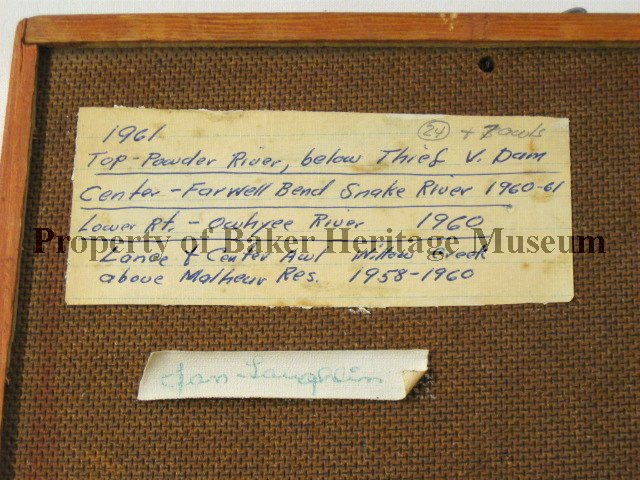 1961 (24) + 7 awls
Top-Powder River, below Thief V. Dam
Center - Farwell Bend Snake River 1960-61
Lower Rt. - Owhyee River 1960
Property of Baker Heritage Museum ©
Lance & Center Awl Willow Creek
above Malheur Res. 1958-1960
Jan Laughlin